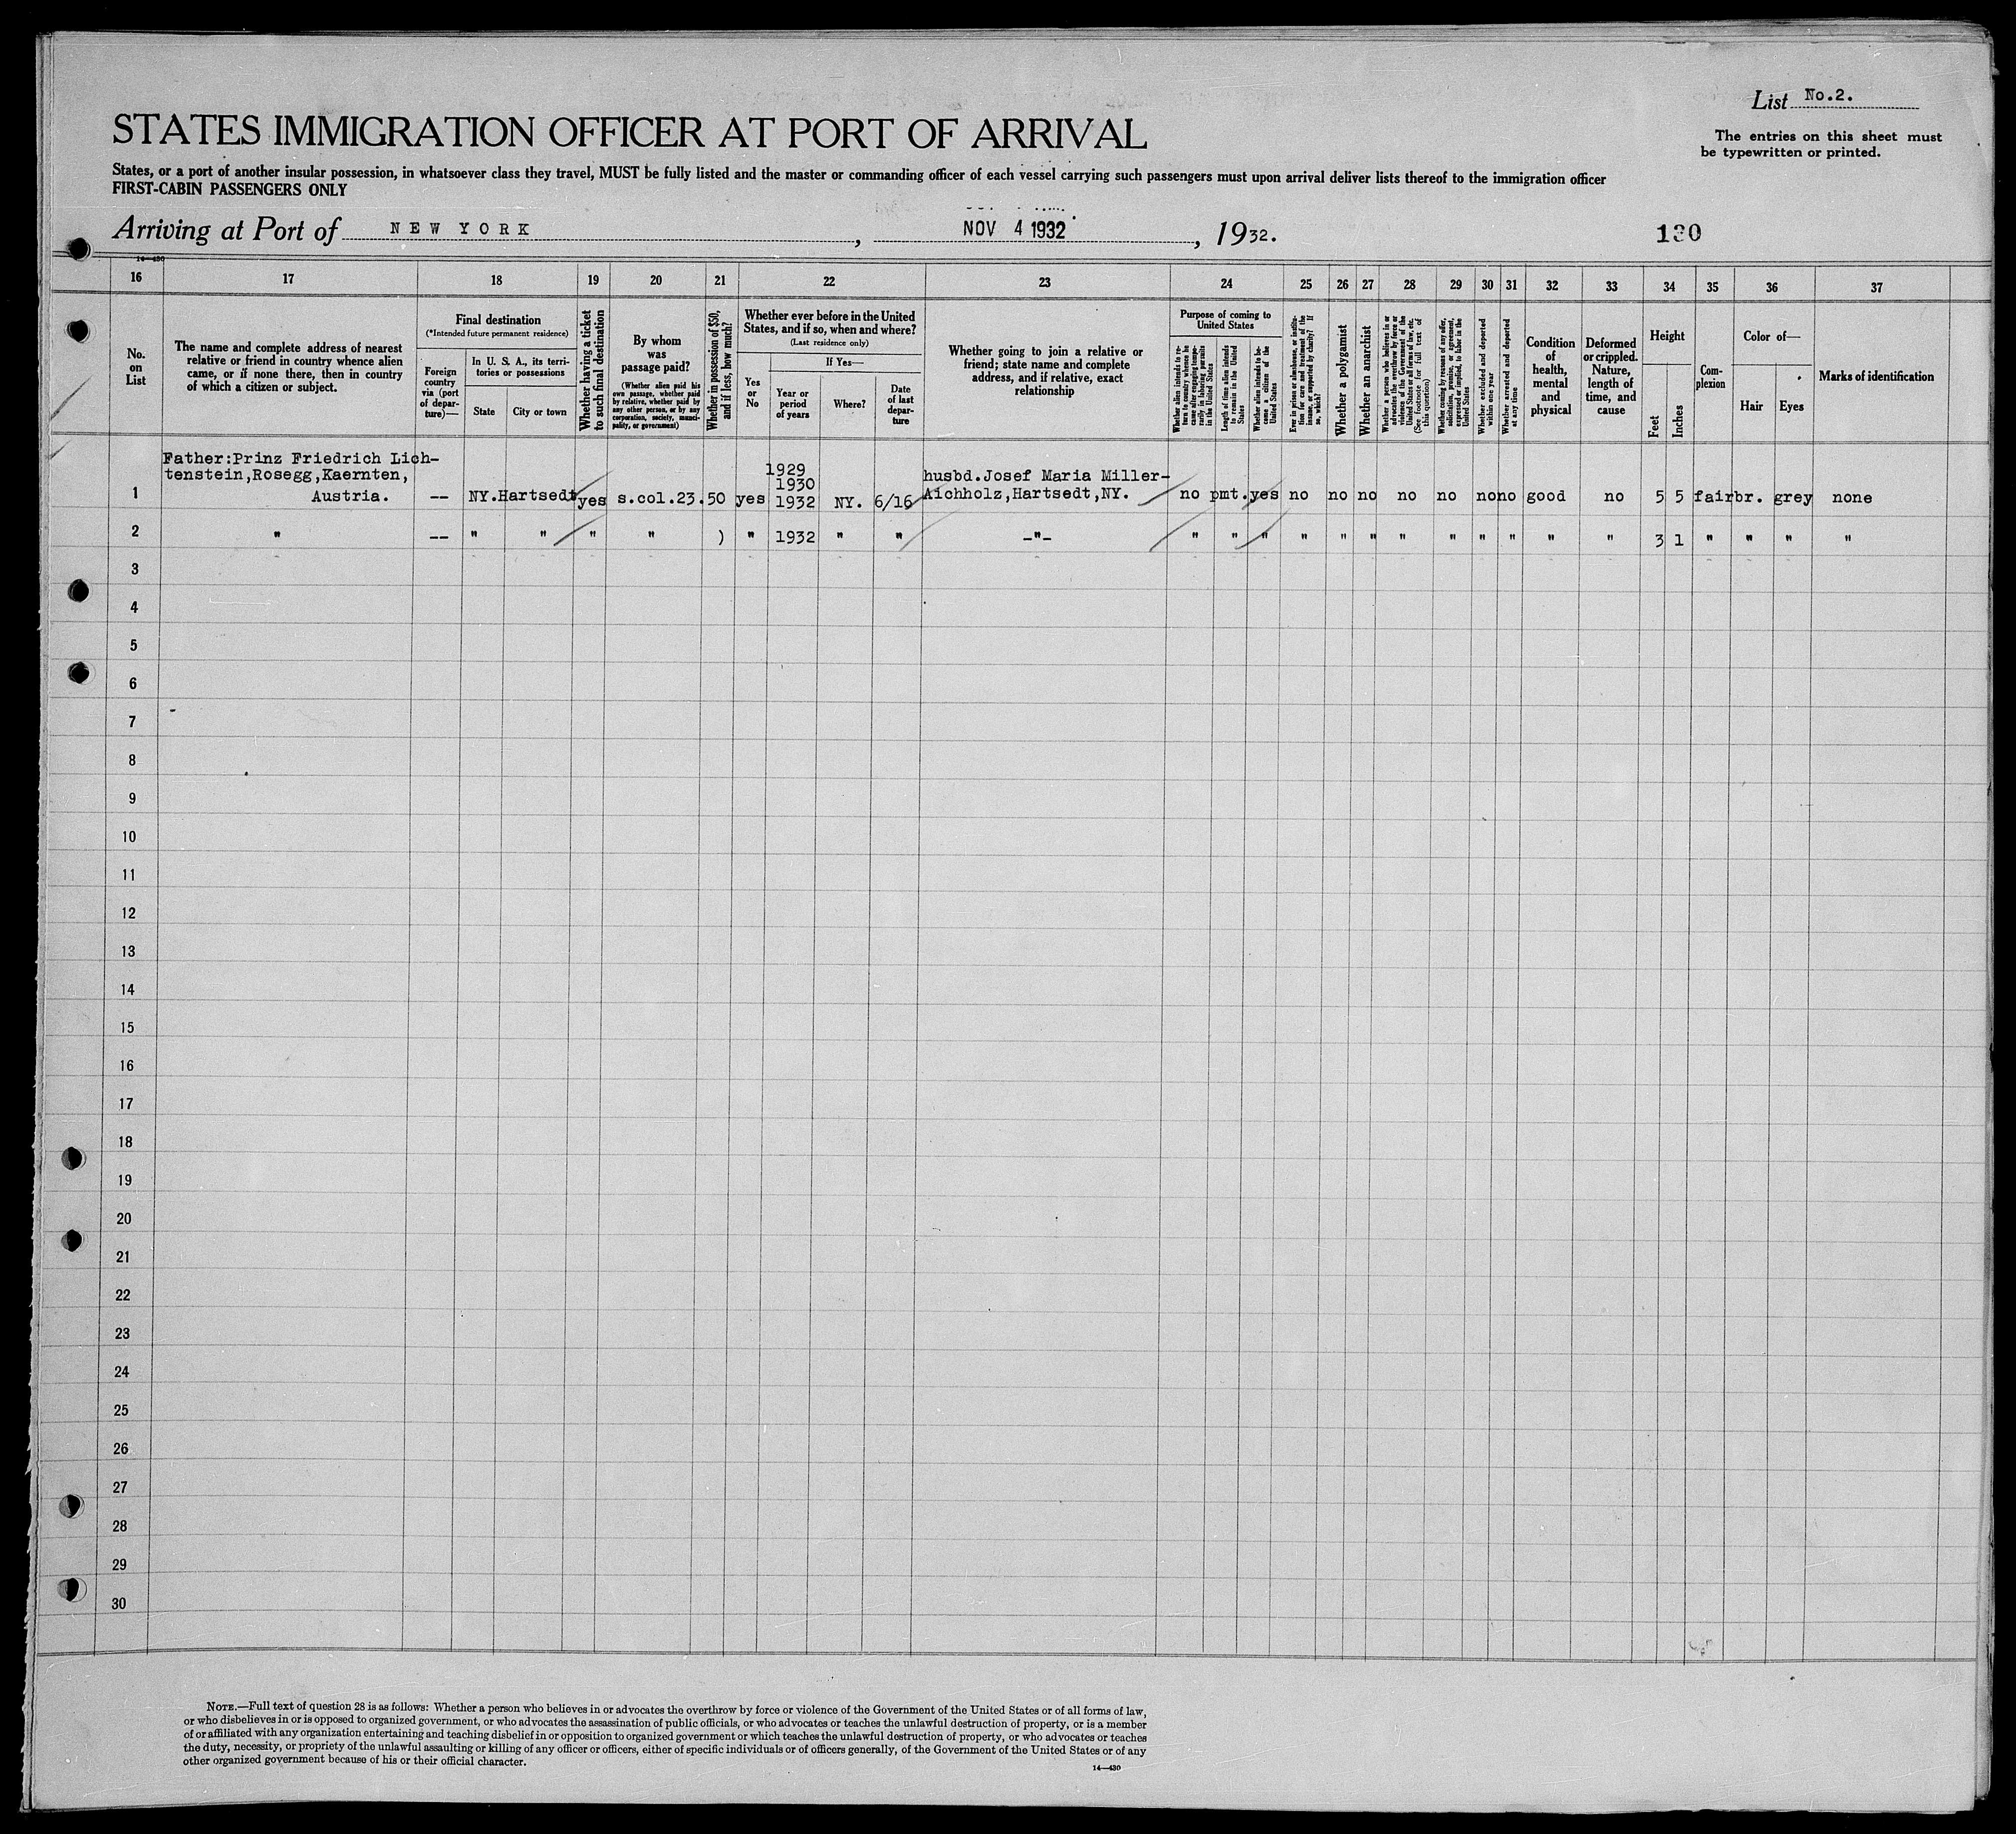 List No.2.
STATES IMMIGRATION OFFICER AT PORT OF ARRIVAL
The entries on this sheet must
be typewritten or printed.
States, or a port of another insular possession, in whatsoever class they travel, MUST be fully listed and the master or commanding officer of each vessel carrying such passengers must upon arrival deliver lists thereof to the immigration officer
FIRST-CABIN PASSENGERS ONLY
Arriving at Port of NEW YORK, NOV 4 1932, 1932.
130
14—430
16 17 18 19 20 21 22 23 24 25 26 27 28 29 30 31 32 33 34 35 36 37
No. on List
The name and complete address of nearest
relative or friend in country whence alien
came, or if none there, then in country
of which a citizen or subject.
Final destination
(*Intended future permanent residence)
Foreign
country
via (port
of depar-
ture)—
In U. S. A., its terri-
tories or possessions
State
City or town
Whether having a ticket
to such final destination
By whom
was
passage paid?
(Whether alien paid his
own passage, whether paid
by relative, whether paid by
any other person, or by any
corporation, society, munici-
pality, or government)
Whether in possession of $50,
and if less, how much?
Whether ever before in the United
States, and if so, when and where?
(Last residence only)
Yes
or
No
If Yes—
Year or
period
of years
Where?
Date
of last
depar-
ture
Whether going to join a relative or
friend; state name and complete
address, and if relative, exact
relationship
Purpose of coming to
United States
Whether alien intends to re-
turn to country whence he
came after engaging tempo-
rarily in laboring pursuits
in the United States
Length of time alien intends
to remain in the United
States
Whether alien intends to be-
come a citizen of the
United States
Ever in prison or almshouse, or institu-
tion for care and treatment of the
insane, or supported by charity? If
so, which?
Whether a polygamist
Whether an anarchist
Whether a person who believes in or
advocates the overthrow by force or
violence of the Government of the
United States or all forms of law, etc.
(See footnote for full text of
this question)
Whether coming by reason of any offer,
solicitation, promise, or agreement,
expressed or implied, to labor in the
United States
Whether excluded and deported
within one year
Whether arrested and deported
at any time
Condition
of
health,
mental
and
physical
Deformed
or crippled.
Nature,
length of
time, and
cause
Height
Feet
Inches
Com-
plexion
Color of—
Hair
Eyes
Marks of identification
Father:Prinz Friedrich Lich-
tenstein,Rosegg,Kaernten,
Austria.
1 -- NY. Hartsedt yes s.col.23. 50 yes 1929 1930 1932 NY. 6/16 husbd.Josef Maria Miller-
Aichholz,Hartsedt,NY. no pmt. yes no no no no no no no good no 5 5 fair br. grey none
2 " -- " " " " ) " 1932 " " -"- " " " " " " " " " " " " 3 1 " " " "
3
4
5
6
7
8
9
10
11
12
13
14
15
16
17
18
19
20
21
22
23
24
25
26
27
28
29
30
NOTE.—Full text of question 28 is as follows: Whether a person who believes in or advocates the overthrow by force or violence of the Government of the United States or of all forms of law,
or who disbelieves in or is opposed to organized government, or who advocates the assassination of public officials, or who advocates or teaches the unlawful destruction of property, or is a member
of or affiliated with any organization entertaining and teaching disbelief in or opposition to organized government or which teaches the unlawful destruction of property, or who advocates or teaches
the duty, necessity, or propriety of the unlawful assaulting or killing of any officer or officers, either of specific individuals or of officers generally, of the Government of the United States or of any
other organized government because of his or their official character.
14—430